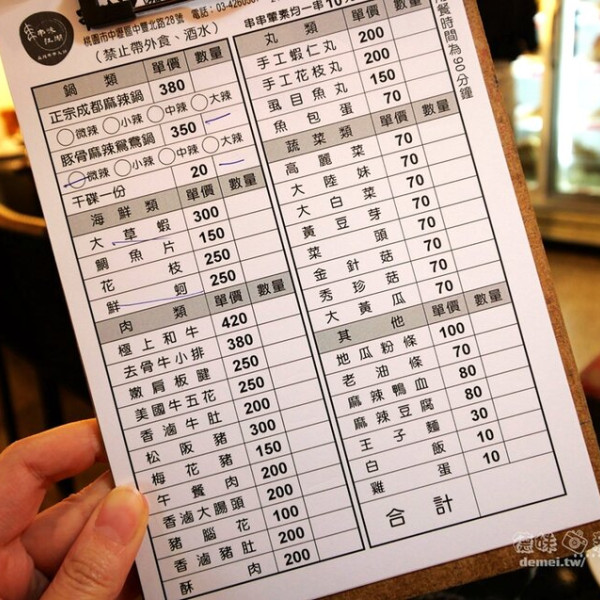 桃園市中壢區中豐北路28號
（禁止帶外食、酒水）
鍋類 單價 數量
正宗成都麻辣鍋 380
微辣 小辣 中辣 大辣
豚骨麻辣鴛鴦鍋 350
微辣 小辣 中辣 大辣
干碟一份 20
海鮮類 單價 數量
大草蝦 300
鯛魚片 150
花枝 250
鮮蚵 250
肉類 單價 數量
極上和牛 420
去骨牛小排 380
嫩肩板腱 250
美國牛五花 250
香滷牛肚 200
松阪豬 300
梅花豬 150
午餐肉 200
香滷大腸頭 200
豬腦花 100
香滷豬肚 200
酥肉 200
丸類 單價 數量
手工蝦仁丸 200
手工花枝丸 200
虱目魚丸 150
魚包蛋 70
蔬菜類 單價 數量
高麗菜 70
大陸妹 70
大白菜 70
黃豆芽 70
菜頭 70
金針菇 70
秀珍菇 70
大黃瓜 70
其他 單價 數量
地瓜粉條 100
老油條 70
麻辣鴨血 80
麻辣豆腐 80
王子麵 30
白飯 10
雞蛋 10
合計
用餐時間為90分鐘
demei.tw/